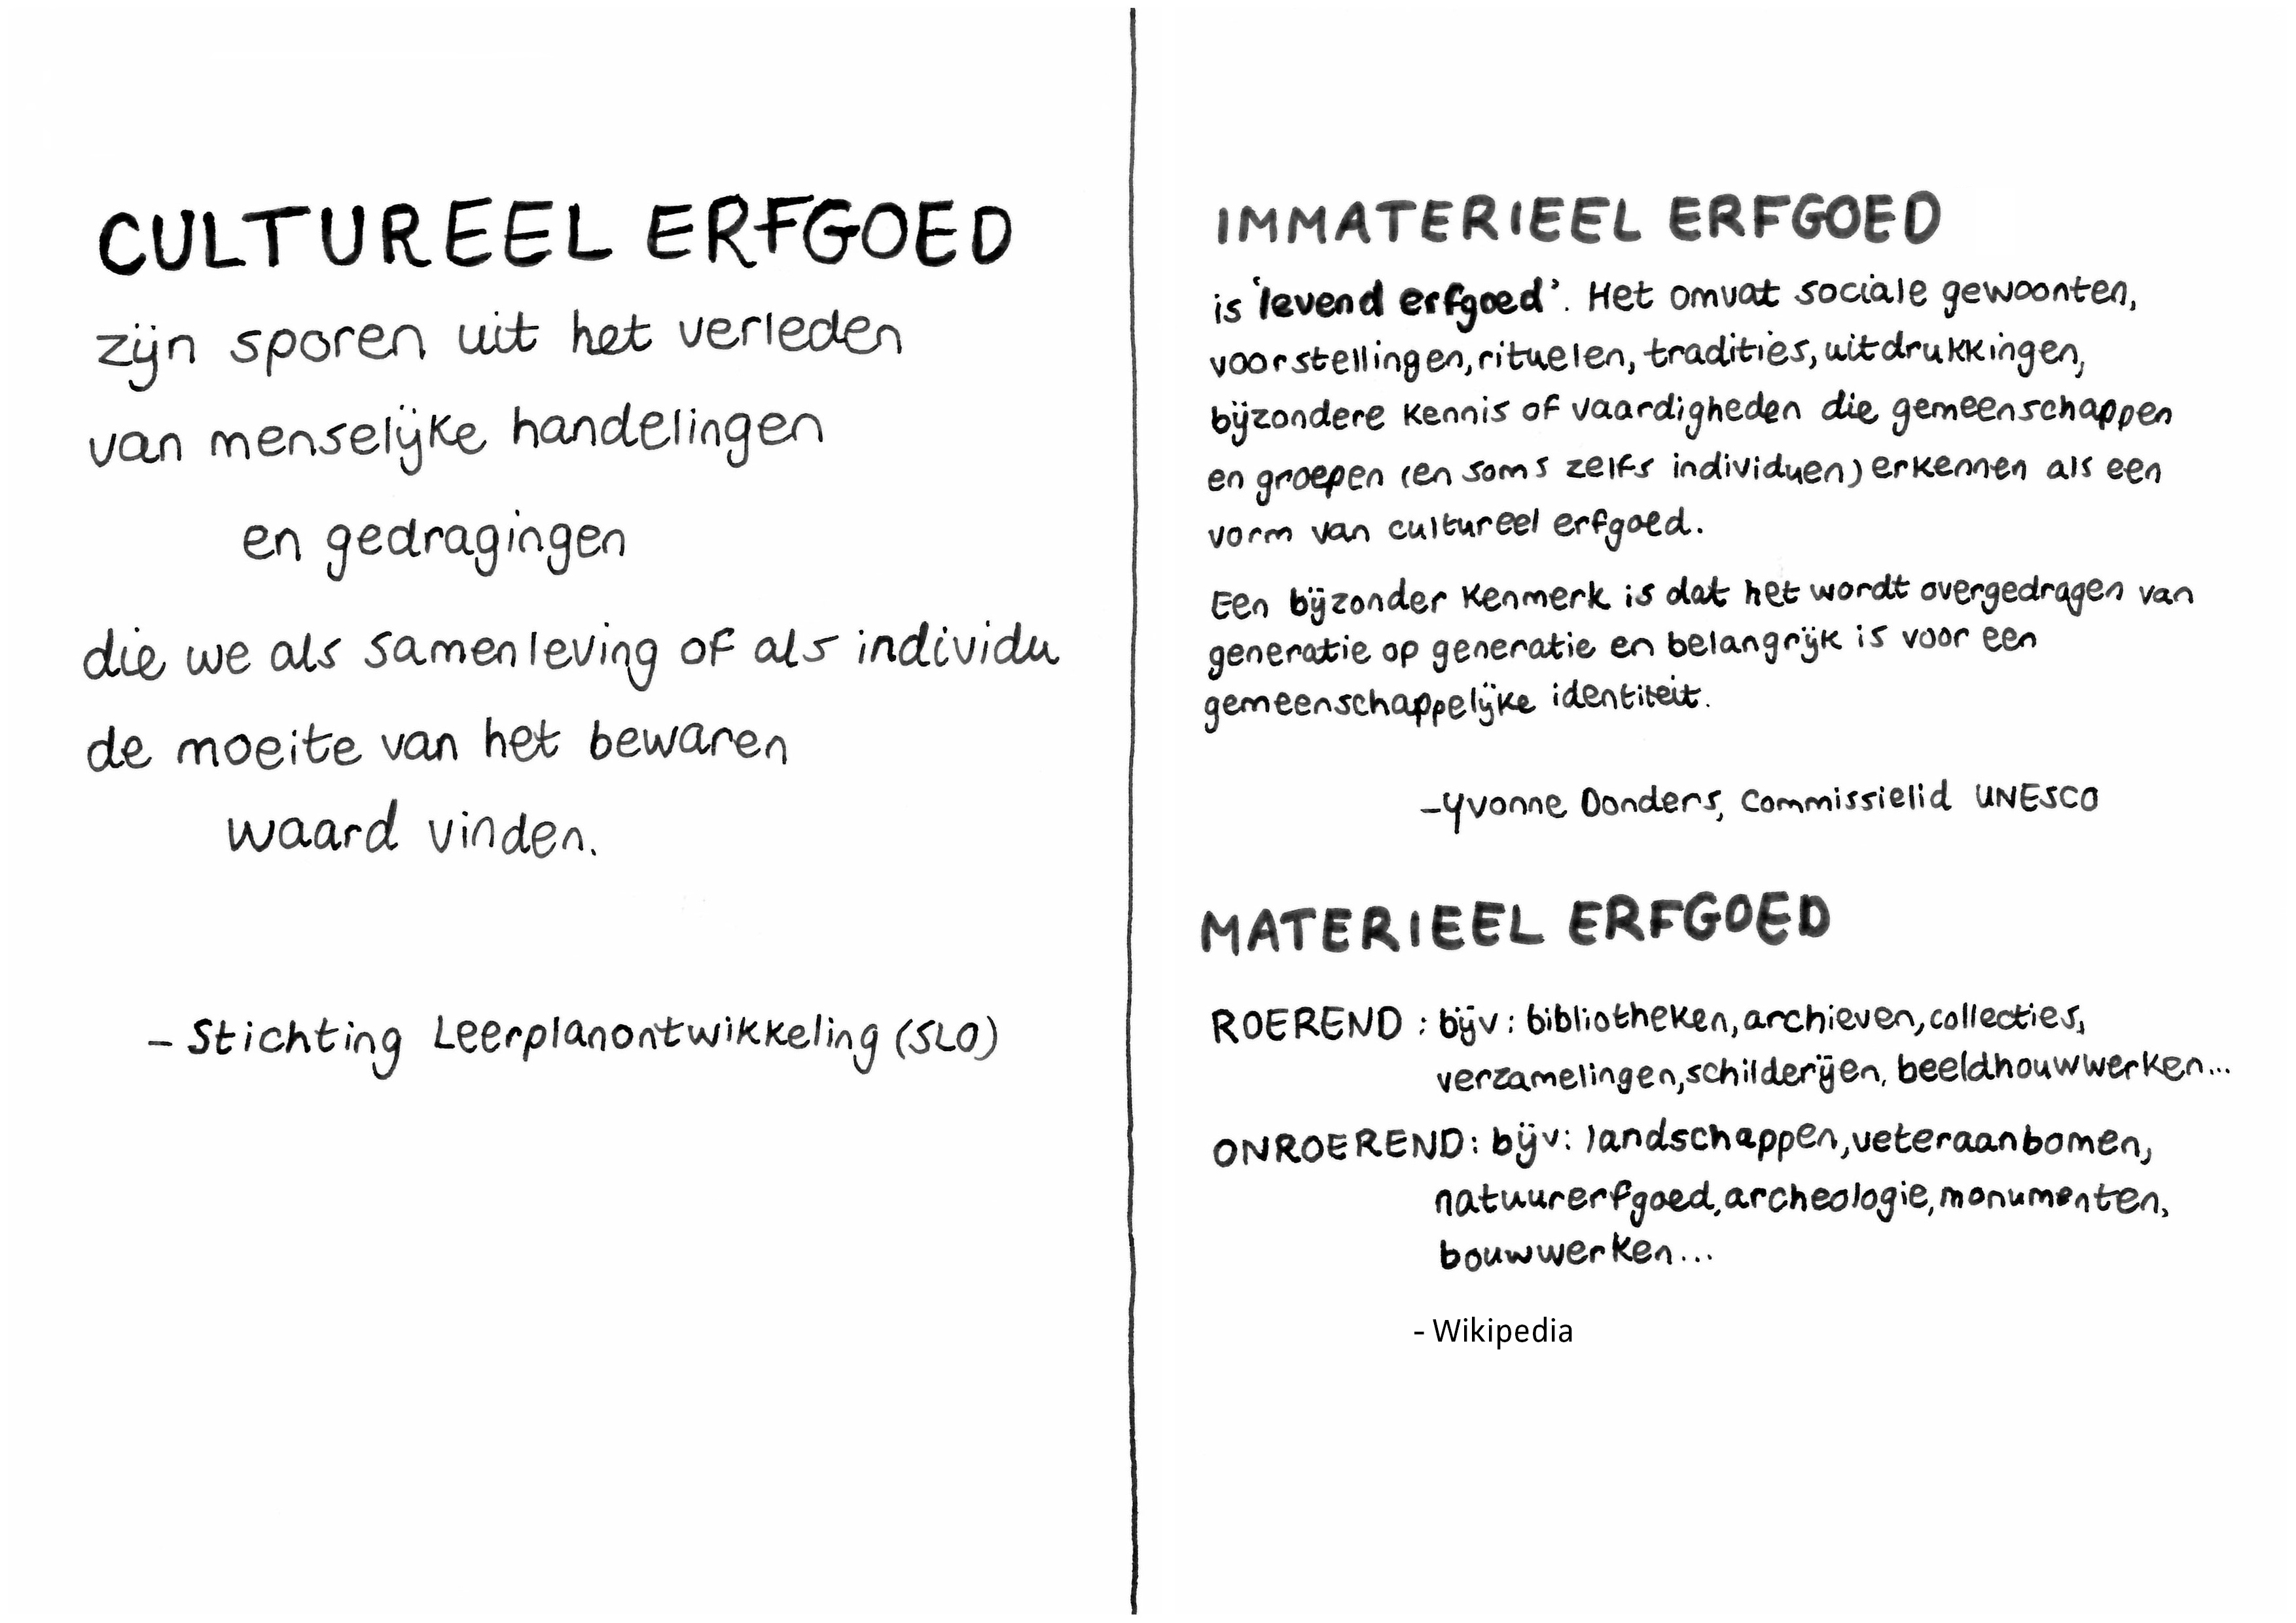 CULTUREEL ERFGOED
zijn sporen uit het verleden
van menselijke handelingen
en gedragingen
die we als samenleving of als individu
de moeite van het bewaren
waard vinden.
- Stichting Leerplanontwikkeling (SLO)
IMMATERIEEL ERFGOED
is 'levend erfgoed'. Het omvat sociale gewoonten,
voorstellingen, rituelen, tradities, uitdrukkingen,
bijzondere kennis of vaardigheden die gemeenschappen
en groepen (en soms zelfs individuen) erkennen als een
vorm van cultureel erfgoed.
Een bijzonder kenmerk is dat het wordt overgedragen van
generatie op generatie en belangrijk is voor een
gemeenschappelijke identiteit.
-Yvonne Donders, Commissielid UNESCO
MATERIEEL ERFGOED
ROEREND : bijv: bibliotheken, archieven, collecties,
verzamelingen, schilderijen, beeldhouwwerken...
ONROEREND: bijv: landschappen, veteraanbomen,
natuurerfgoed, archeologie, monumenten,
bouwwerken...
- Wikipedia